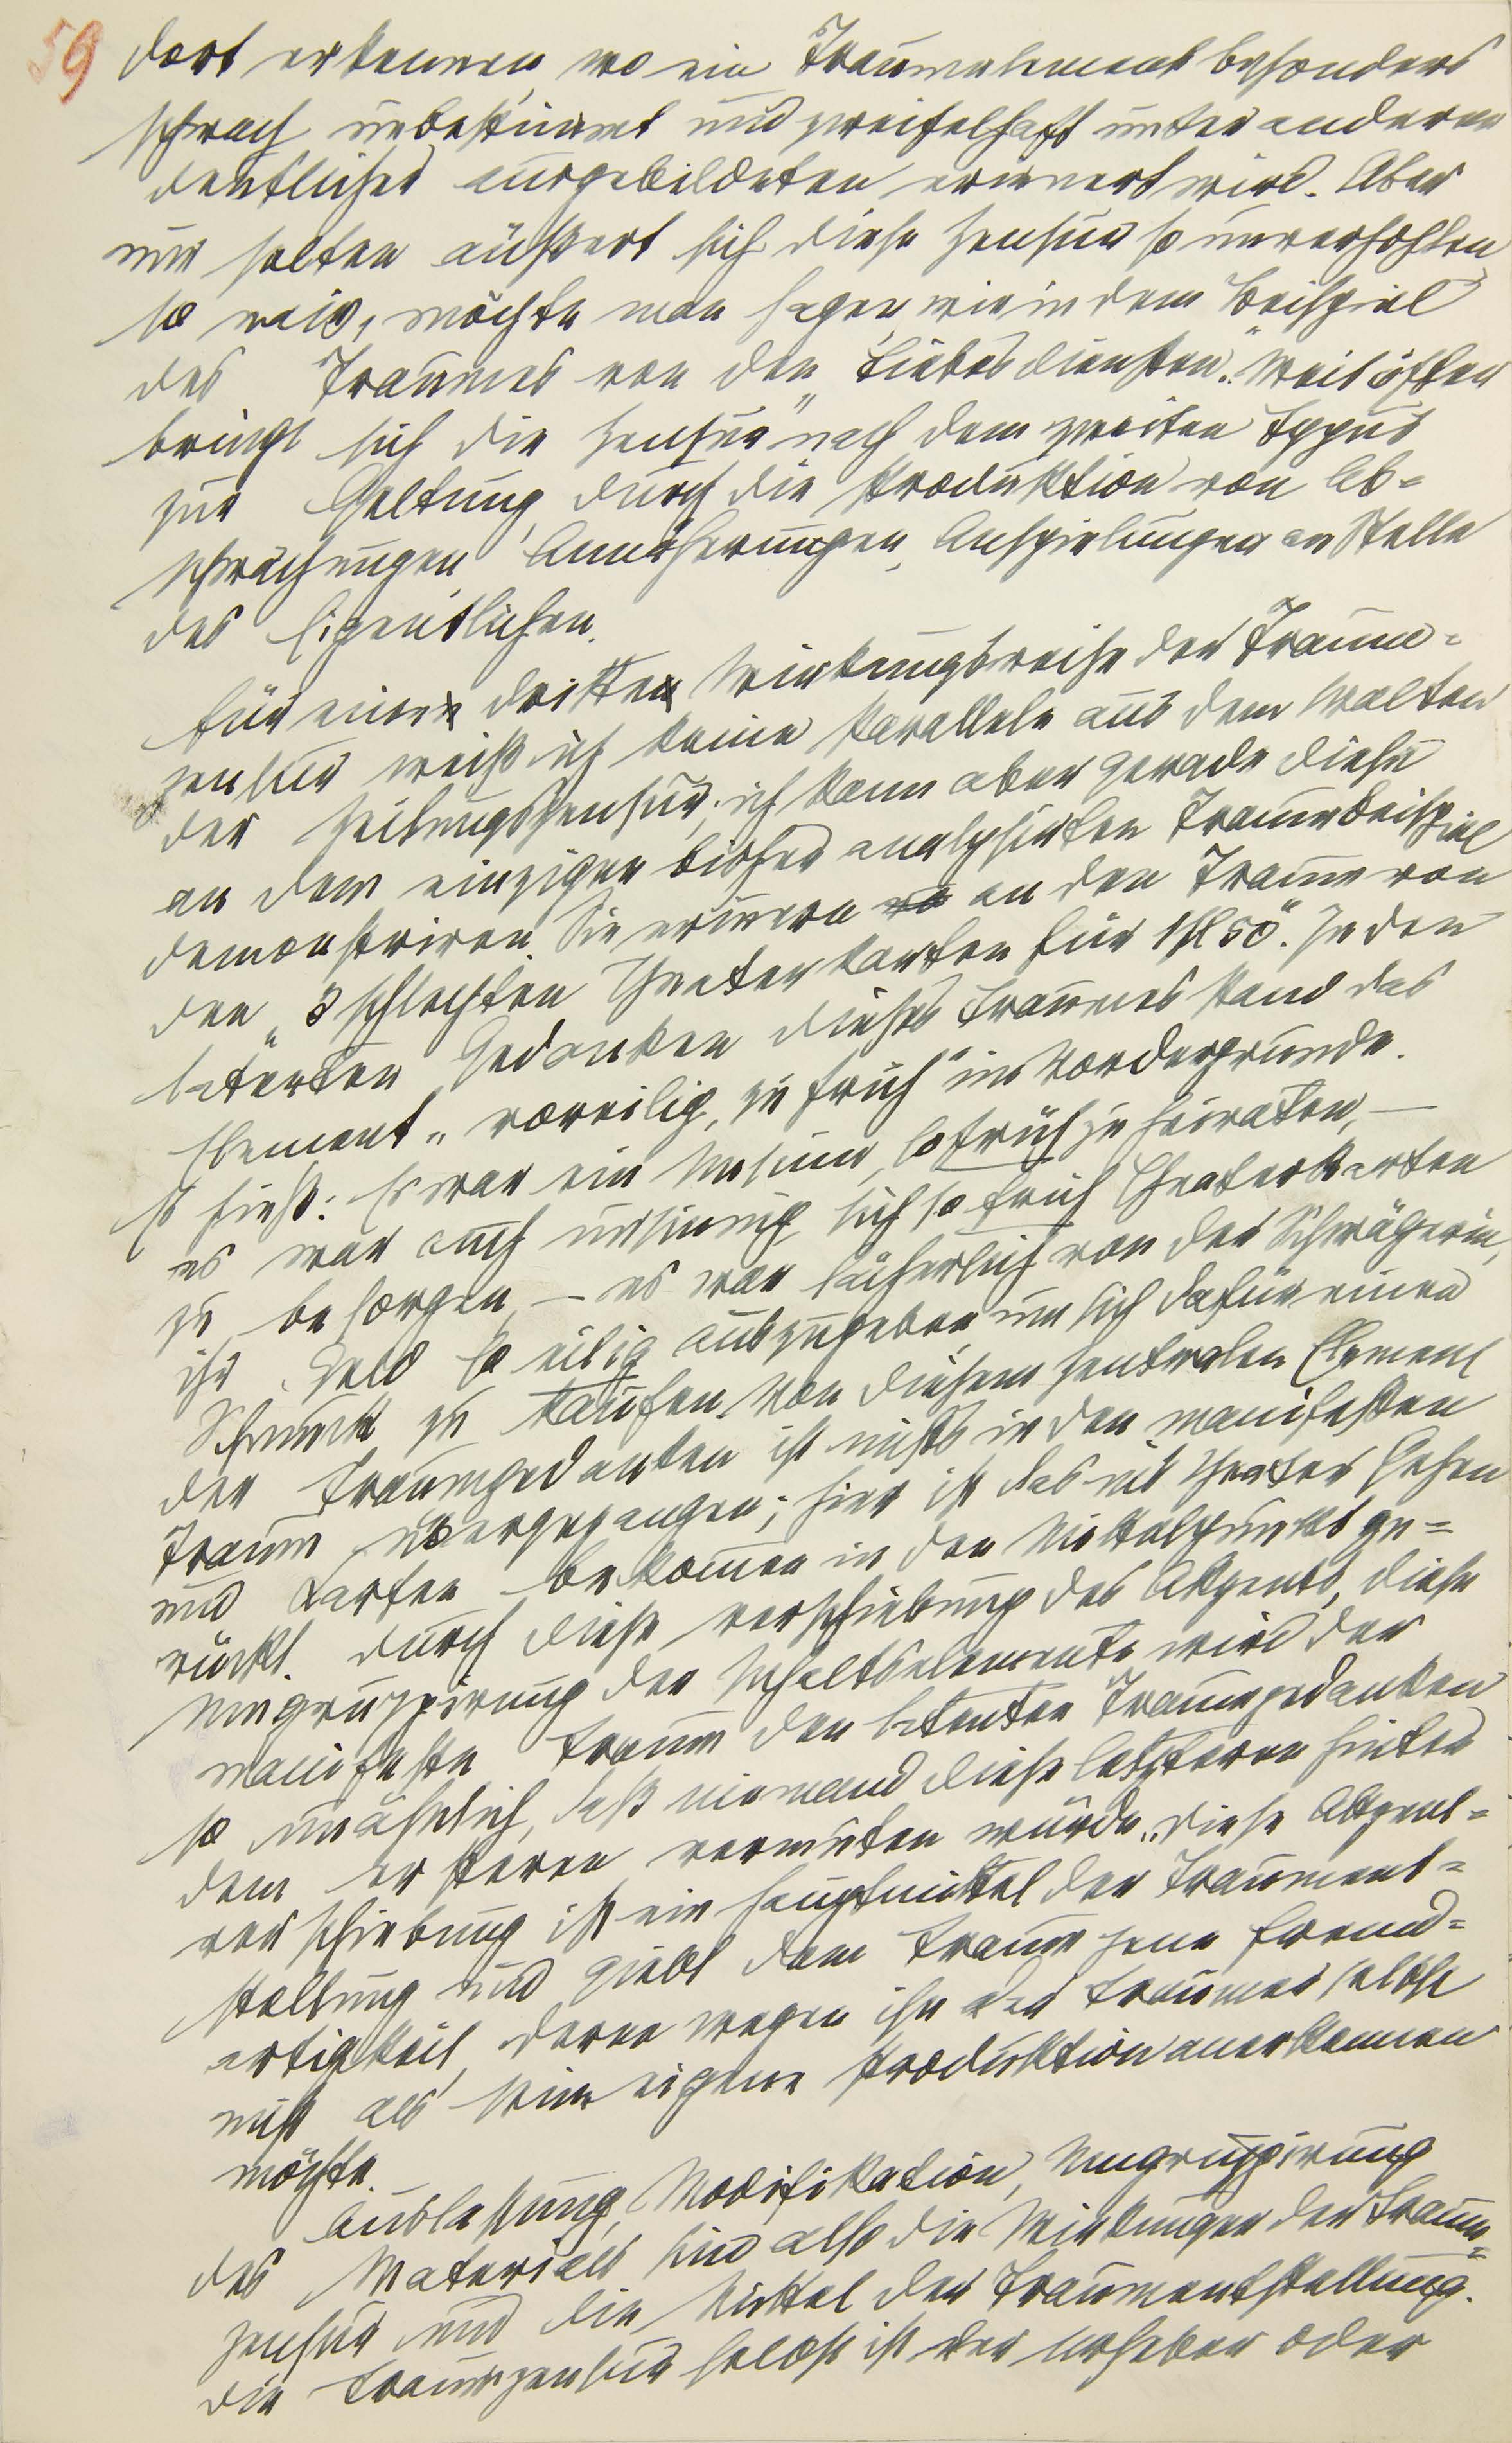 59
dort erkennen, wo ein Traumelement besonders
schwach unbestimmt und zweifelhaft unter anderen
deutlicher ausgebildeten erinnert wird. Aber
nur selten äußert sich diese Zensur so unverhohlen
so naiv, möchte man sagen, wie in dem Beispiel
des Traumes von den „Liebesdiensten". Weit öfter
bringt sich die Zensur nach dem zweiten Typus
zur Geltung, durch die Produktion von Ab=
schwächungen, Annäherungen, Anspielungen an Stelle
des Eigentlichen.
Für eine dritte Wirkungsweise der Traum=
zensur weiß ich keine Parallele aus dem Walten
der Zeitungszensur; ich kann aber gerade diese
an dem einzigen bisher analysirten Traumbeispiel
demonstriren. Sie erinnern an den Traum von
den „3 schlechten Theaterkarten für 1 fl 50". In den
latenten Gedanken dieses Traumes stand das
Element „voreilig, zu früh" im Vordergrunde.
Es hieß: Es war ein Unsinn, so früh zu heiraten, —
es war auch unsinnig sich so früh Theaterkarten
zu besorgen, — es war lächerlich von der Schwägerin,
ihr Geld so eilig auszugeben um sich dafür einen
Schmuck zu kaufen. Von diesem zentralen Element
der Traumgedanken ist nichts in den manifesten
Traum übergegangen; hier ist das ins Theater Gehen
und Karten bekommen in den Mittelpunkt ge=
rückt. Durch diese Verschiebung des Akzents, diese
Umgruppirung der Inhaltselemente wird der
manifeste Traum den latenten Traumgedanken
so unähnlich, daß niemand diese letzteren hinter
dem ersteren vermuten würde. Diese Akzent=
verschiebung ist ein Hauptmittel der Traument=
stellung und giebt dem Traum jene Fremd=
artigkeit, deren wegen ihn der Träumer selbst
nicht als seine eigene Produktion anerkennen
möchte.
Auslassung, Modifikation, Umgruppirung
des Materials sind also die Wirkungen der Traum=
zensur und die Mittel der Traumentstellung.
Die Traumzensur selbst ist der Urheber oder